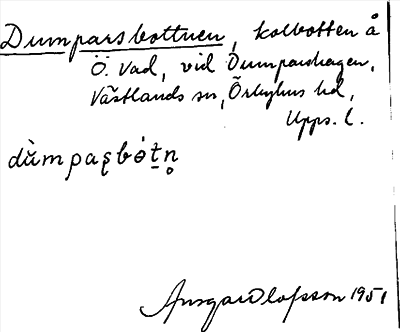 Dumparsbottnen, kolbotten å
Ö. Vad, vid Dumparshagen,
Västlands sn, Örbyhus hd,
Upps. l.
dùmpaʂbótn̥
Ansgar Olofsson 1951